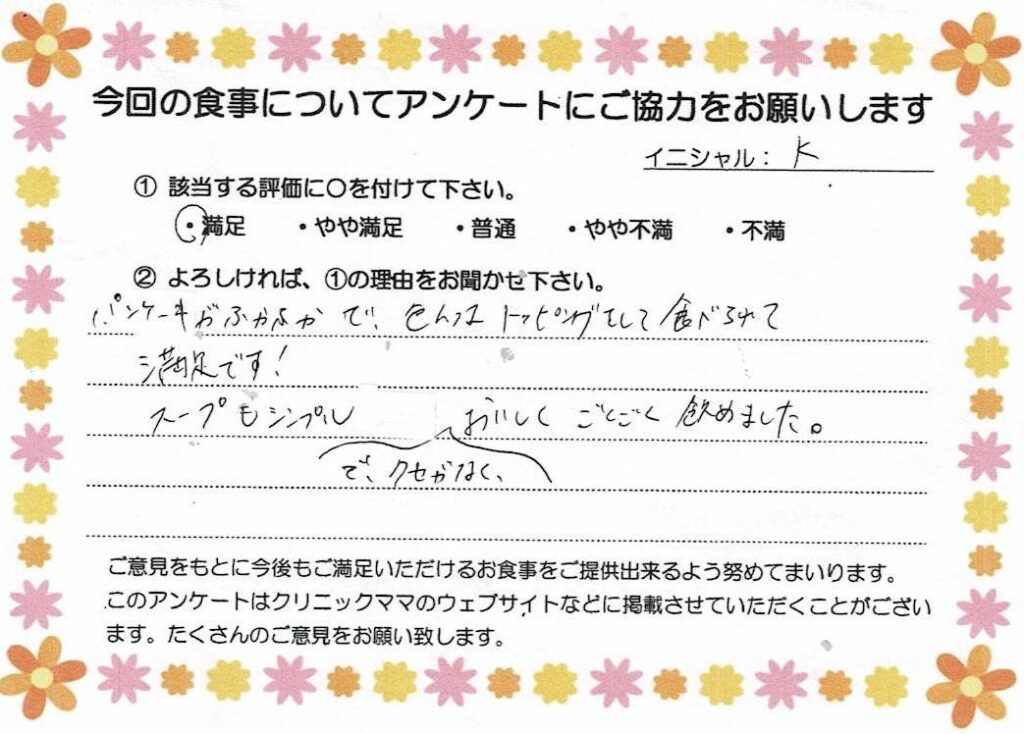 今回の食事についてアンケートにご協力をお願いします
イニシャル： K
① 該当する評価に○を付けて下さい。
・満足 ・やや満足 ・普通 ・やや不満 ・不満
② よろしければ、①の理由をお聞かせ下さい。
パンケーキがふかふかで、色んなトッピングをして食べられて
満足です！
スープもシンプル おいしく ごくごく 飲めました。
で、クセがなく、
ご意見をもとに今後もご満足いただけるお食事をご提供出来るよう努めてまいります。
このアンケートはクリニックママのウェブサイトなどに掲載させていただくことがござい
ます。たくさんのご意見をお願い致します。